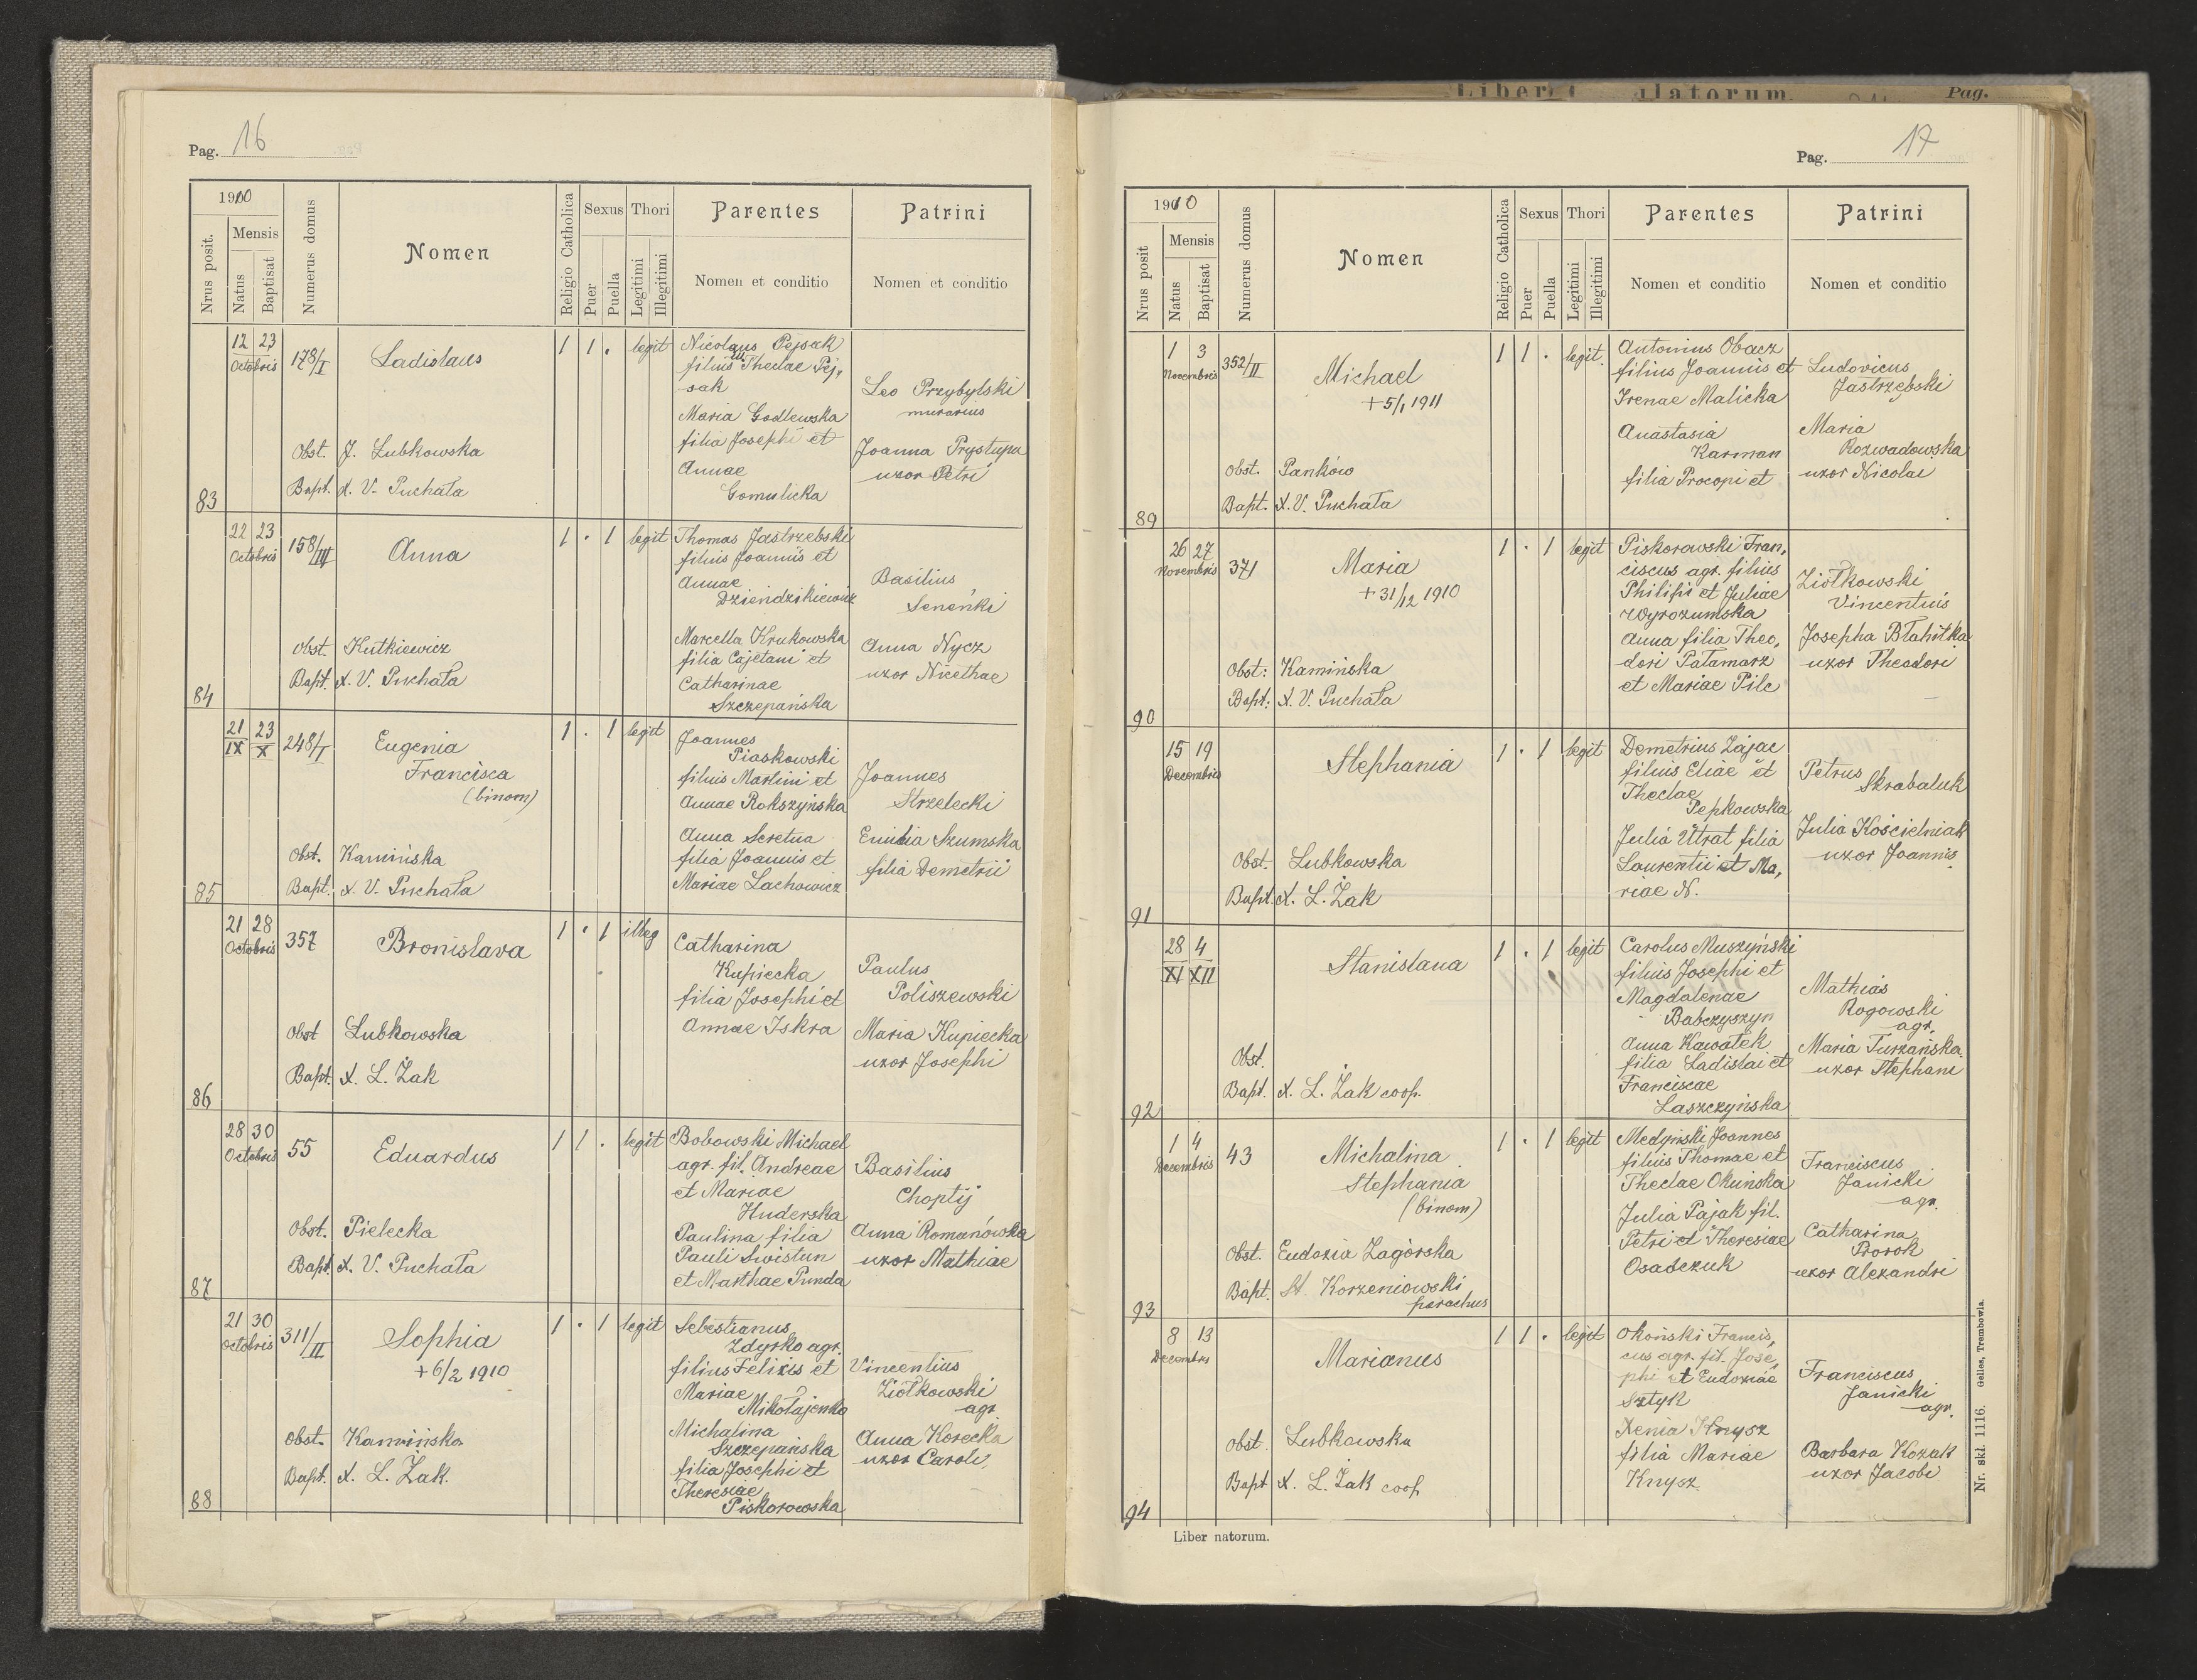 Pag. 16
1910
Nrus posit.
Mensis
Natus
Baptisat
Numerus domus
Nomen
Religio Catholica
Sexus
Puer
Puella
Thori
Legitimi
Illegitimi
Parentes
Nomen et conditio
Patrini
Nomen et conditio
83
12 23
Octobris
178/I
Ladislaus
Obst. J. Lubkowska
Bapt. X. V. Puchała
1 1 . legit
Nicolaus Pejsak
filius Theclae Pej,
sak
Maria Godlewska
filia Josephi et
Annae
Gomulicka
Leo Przybylski
murarius
Joanna Prystupa
uxor Petri
84
22 23
Octobris
158/III
Anna
Obst. Kutkiewicz
Bapt. X. V. Puchała
1 . 1 legit
Thomas Jastrzebski
filius Joannis et
Annae
Dziendzikiewicz
Marcella Krukowska
filia Cajetani et
Catharinae
Szczepańska
Basilius
Seneńki
Anna Nycz
uxor Nicethae
85
21 23
IX X
248/I
Eugenia
Francisca
(binom)
Obst. Kamińska
Bapt. X. V. Puchała
1 . 1 legit
Joannes
Piaskowski
filius Martini et
Annae Rokszyńska
Anna Seretna
filia Joannis et
Mariae Lachowicz
Joannes
Strzelecki
Emilia Szumska
filia Demetrii
86
21 28
Octobris
357
Bronislava
Obst Lubkowska
Bapt. X. L. Żak
1 . 1 illeg
Catharina
Kupiecka
filia Josephi et
Annae Iskra
Paulus
Poliszewski
Maria Kupiecka
uxor Josephi
87
28 30
Octobris
55
Eduardus
Obst. Pielecka
Bapt. X. V. Puchała
1 1 . legit
Bobowski Michael
agr. fil. Andreae
et Mariae
Huderska
Paulina filia
Pauli Swistun
et Marthae Punda
Basilius
Choptij
Anna Romanówska
uxor Mathiae
88
21 30
Octobris
311/II
Sophia
+6/2 1910
Obst. Kamińska
Bapt. X. L. Żak.
1 . 1 legit
Sebestianus
Zdyrko agr.
filius Felixis et
Mariae
Mikołajenko
Michalina
Szczepańska
filia Josephi et
Theresiae
Piskorowska
Vincentius
Ziółkowski
agr.
Anna Korecka
uxor Caroli
Liber latorum. Pag.
Pag. 17
1910
Nrus posit
Mensis
Natus
Baptisat
Numerus domus
Nomen
Religio Catholica
Sexus
Puer
Puella
Thori
Legitimi
Illegitimi
Parentes
Nomen et conditio
Patrini
Nomen et conditio
89
1 3
Novembris
352/II
Michael
+5/1 1911
Obst. Panków
Bapt. X. V. Puchała
1 1 . legit.
Antonius Obacz
filius Joannis et
Irenae Malicka
Anastasia
Karman
filia Procopi et
Ludovicus
Jastrzębski
Maria
Rozwadowska
uxor Nicolai
90
26 27
Novembris
371
Maria
+31/12 1910
Obst: Kamińska
Bapt: X. V. Puchała
1 . 1 legit
Piskorowski Fran,
ciscus agr. filius
Philipi et Juliae
Wyrozumska
Anna filia Theo,
dori Pałamarz
et Mariae Pilc
Ziółkowski
Vincentius
Josepha Błahitka
uxor Theodori
91
15 19
Decembris
Stephania
Obst. Lubkowska
Bapt. X. L. Żak
1 . 1 legit
Demetrius Zając
filius Eliae et
Theclae
Pepkowska
Julia Utrat filia
Laurentii et Ma,
riae N.
Petrus
Skrabaluk
Julia Kościelniak
uxor Joannis
92
28 4
XI XII
Stanislaua
Obst.
Bapt. X. L. Żak coop.
1 . 1 legit
Carolus Muszyński
filius Josephi et
Magdalenae
Babczyszyn
Anna Kawałek
filia Ladislai et
Franciscae
Laszczyńska
Mathias
Rogowski
agr.
Maria Turzańska
uxor Stephani
93
1 4
Decembris
43
Michalina
Stephania
(binom)
Obst. Eudoxia Zagórska
Bapt. St. Korzeniowski
parochus
1 . 1 legit
Medyński Joannes
filius Thomae et
Theclae Okuńska
Julia Pająk fil.
Petri et Theresiae
Osadczuk
Franciscus
Janicki
agr.
Catharina
Prorok
uxor Alexandri
94
8 13
Decembris
Marianus
Obst. Lubkowska
Bapt X. L. Żak coop
1 1 . legit
Okoński Francis,
cus agr. fil. Jose,
phi et Eudoxiae
Sztyk
Xenia Knysz
filia Mariae
Knysz
Franciscus
Janicki
agr.
Barbara Kozak
uxor Jacobi
Liber natorum.
Nr. skł. 1116. Gelles, Trembowla.